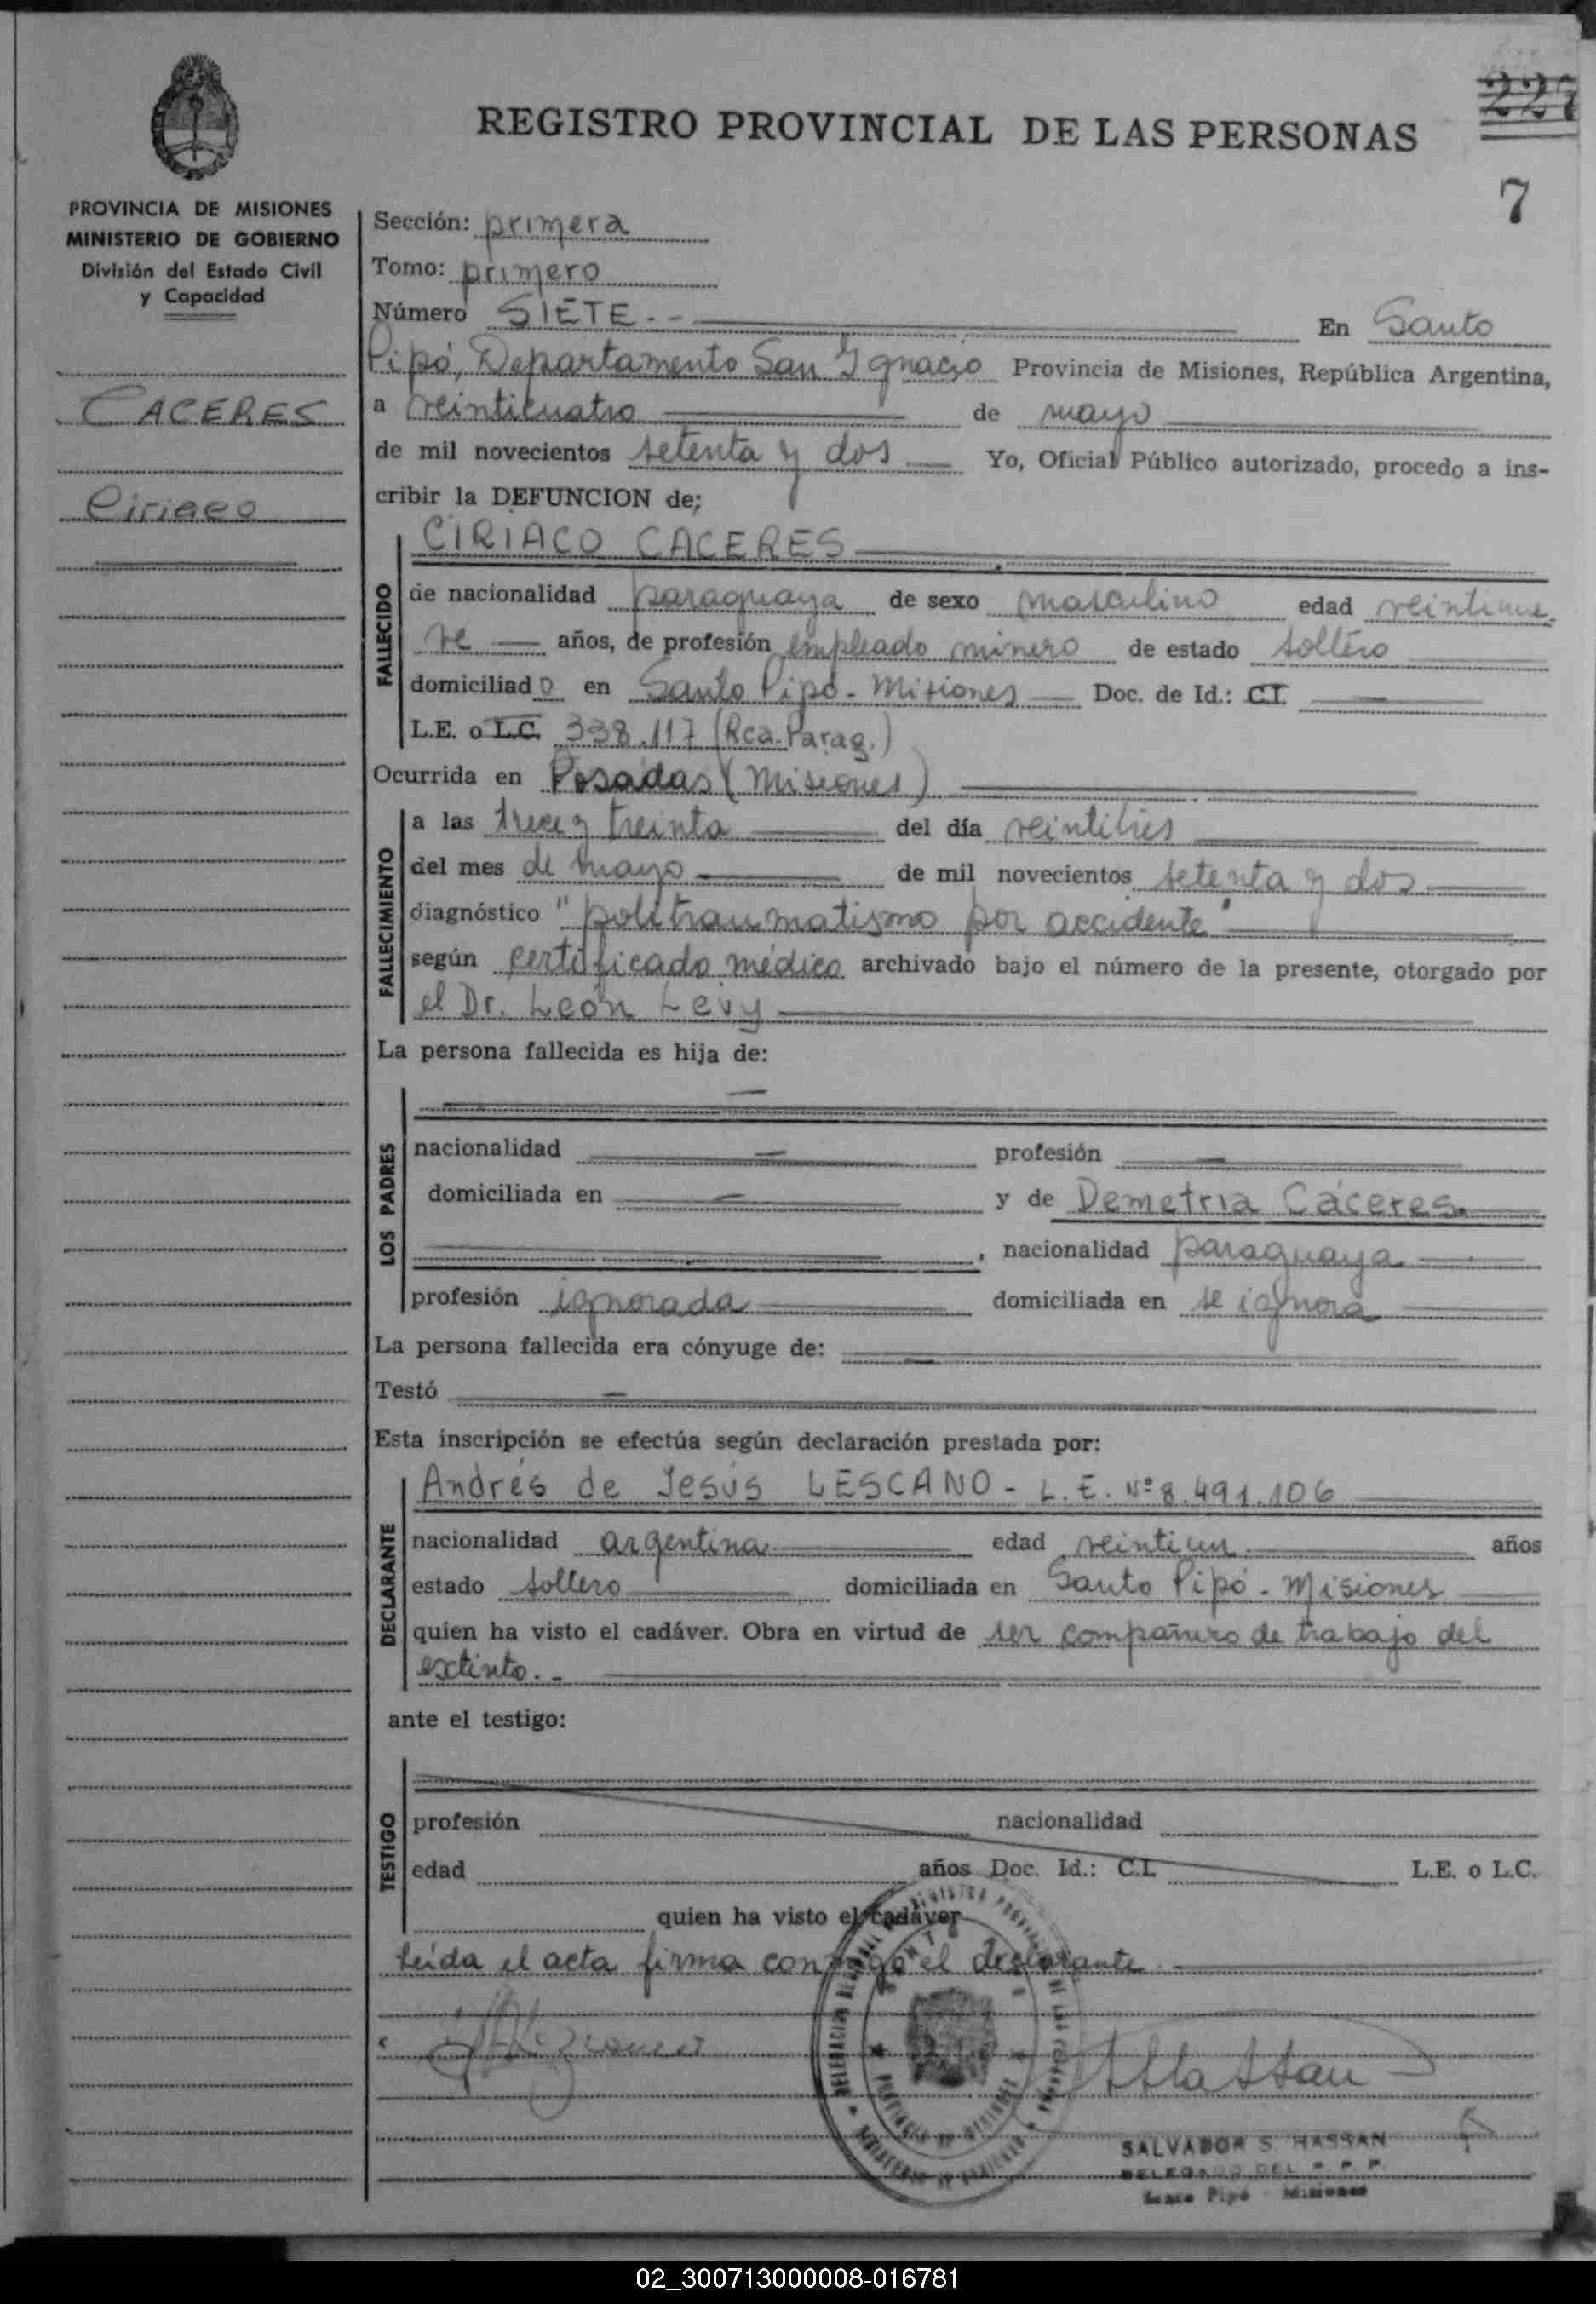 REGISTRO PROVINCIAL DE LAS PERSONAS
227
7
PROVINCIA DE MISIONES
MINISTERIO DE GOBIERNO
División del Estado Civil
y Capacidad
CACERES
Ciriaco
Sección: primera
Tomo: primero
Número SIETE.- En Santo
Pipó, Departamento San Ignacio Provincia de Misiones, República Argentina,
a veinticuatro de mayo
de mil novecientos setenta y dos Yo, Oficial Público autorizado, procedo a ins-
cribir la DEFUNCION de;
FALLECIDO
CIRIACO CACERES
de nacionalidad paraguaya de sexo masculino edad veintinue
ve años, de profesión empleado minero de estado soltero
domiciliado en Santo Pipó - Misiones Doc. de Id.: C.I.
L.E. o L.C. 338.117 (Rca. Parag.)
Ocurrida en Posadas (Misiones)
FALLECIMIENTO
a las trece y treinta del día veintitres
del mes de mayo de mil novecientos setenta y dos
diagnóstico "politraumatismo por accidente"
según certificado médico archivado bajo el número de la presente, otorgado por
el Dr. León Levy
La persona fallecida es hija de:
LOS PADRES
nacionalidad profesión
domiciliada en y de Demetria Cáceres.
, nacionalidad paraguaya
profesión ignorada domiciliada en se ignora
La persona fallecida era cónyuge de:
Testó
Esta inscripción se efectúa según declaración prestada por:
DECLARANTE
Andrés de Jesús LESCANO - L.E. Nº 8.491.106
nacionalidad argentina edad veintiun años
estado soltero domiciliada en Santo Pipó - Misiones
quien ha visto el cadáver. Obra en virtud de ser compañero de trabajo del
extinto.-
ante el testigo:
TESTIGO
profesión nacionalidad
edad años Doc. Id.: C.I. L.E. o L.C.
quien ha visto el cadáver
Leída el acta firma conmigo el declarante
SALVADOR S. HASSAN
DELEGADO DEL R. P. P.
Santo Pipó - Misiones
02_300713000008-016781